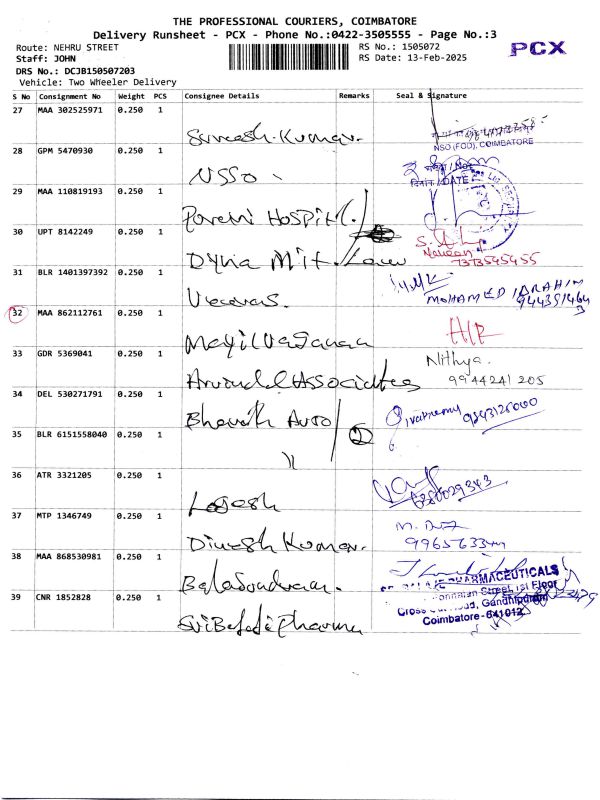 THE PROFESSIONAL COURIERS, COIMBATORE
Delivery Runsheet - PCX - Phone No.:0422-3505555 - Page No.:3
Route: NEHRU STREET
Staff: JOHN
DRS No.: DCJB150507203
Vehicle: Two Wheeler Delivery
RS No.: 1505072
RS Date: 13-Feb-2025
PCX
S No Consignment No Weight PCS Consignee Details Remarks Seal & Signature
27 MAA 302525971 0.250 1 Kumar.
NSO (FOD), COIMBATORE
28 GPM 5470930 0.250 1 NSSO
DATE
29 MAA 110819193 0.250 1 Hospital
30 UPT 8142249 0.250 1 Dyna
Naveen
7373545455
31 BLR 1401397392 0.250 1
MOHAMED IBRAHIM
32 MAA 862112761 0.250 1 Mayilvaganan
33 GDR 5369041 0.250 1 Arvind Associates
Nithya.
9944241205
34 DEL 530271791 0.250 1 Bharath Auto
9843126000
35 BLR 6151558040 0.250 1 "
2
36 ATR 3321205 0.250 1 Logesh
37 MTP 1346749 0.250 1 Dinesh Kumar.
38 MAA 868530981 0.250 1
39 CNR 1852828 0.250 1 Sri Balaji Pharma
PHARMACEUTICALS
Street, 1st Floor
Cross Cut Road, Gandhipuram
Coimbatore - 641012